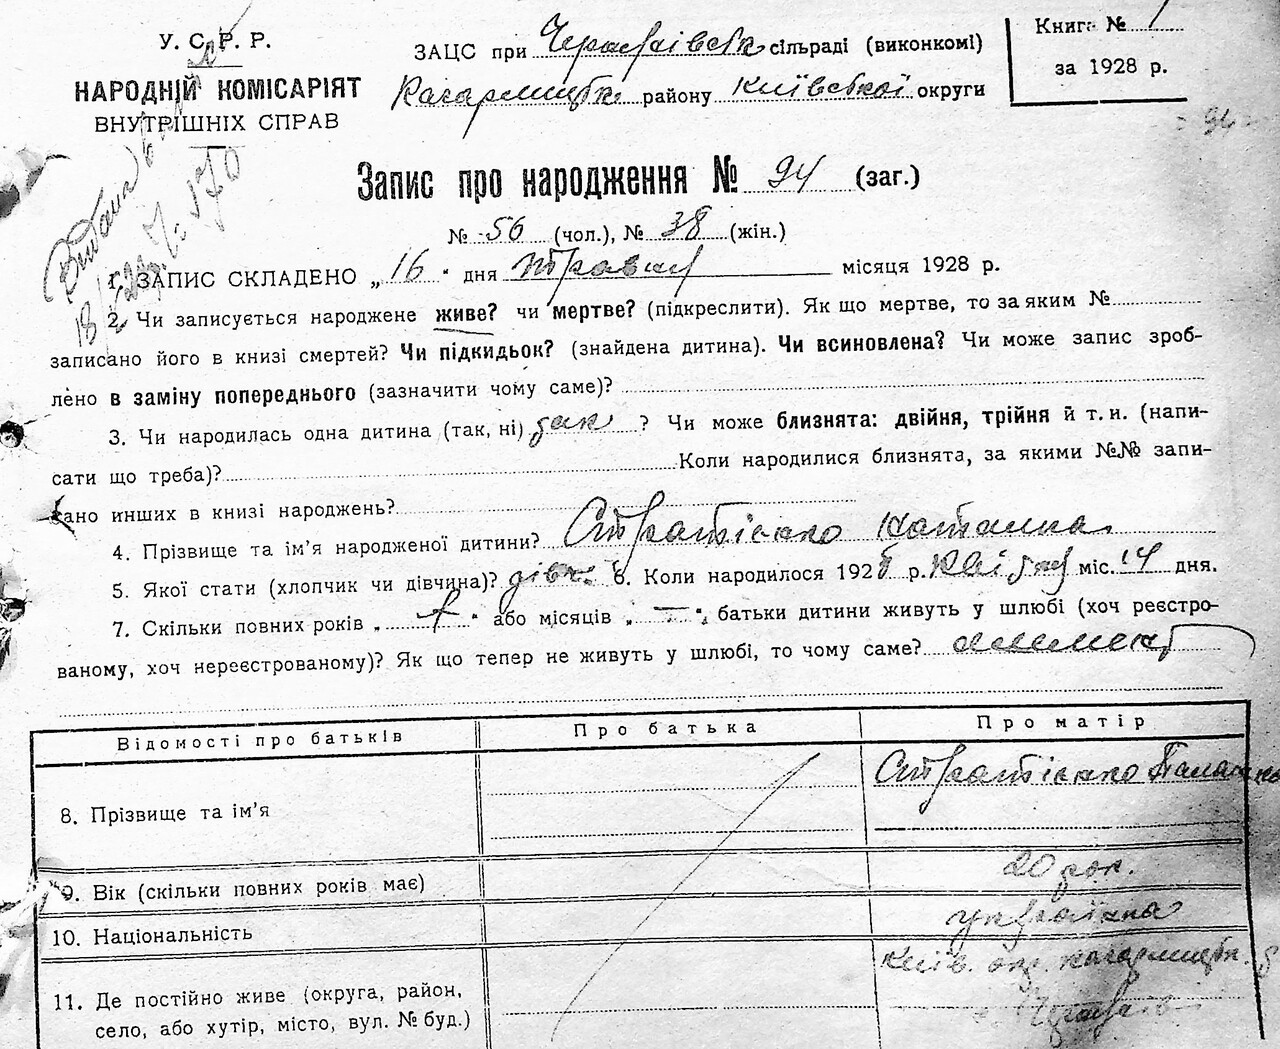 У. С. Р. Р.
НАРОДНІЙ КОМІСАРІЯТ
ВНУТРІШНІХ СПРАВ
ЗАЦС при сільраді (виконкомі)
Кагарлицьк. району Київської округи
Книга № 1
за 1928 р.
Запис про народження № 94 (заг.)
№ 56 (чол.), № 38 (жін.)
1. ЗАПИС СКЛАДЕНО „16" дня травня місяця 1928 р.
2. Чи записується народжене живе? чи мертве? (підкреслити). Як що мертве, то за яким №
записано його в книзі смертей? Чи підкидьок? (знайдена дитина). Чи всиновлена? Чи може запис зроб-
лено в заміну попереднього (зазначити чому саме)?
3. Чи народилась одна дитина (так, ні) так ? Чи може близнята: двійня, трійня й т. и. (напи-
сати що треба)? Коли народилися близнята, за якими №№ запи-
сано инших в книзі народжень?
4. Прізвище та ім'я народженої дитини?
5. Якої стати (хлопчик чи дівчина)? дівч. 6. Коли народилося 1928 р. квітня міс. 14 дня.
7. Скільки повних років „ " або місяців „ — " батьки дитини живуть у шлюбі (хоч реєстро-
ваному, хоч нереєстрованому)? Як що тепер не живуть у шлюбі, то чому саме?
Відомості про батьків
Про батька
Про матір
8. Прізвище та ім'я
9. Вік (скільки повних років має)
20 рок.
10. Національність
українка
11. Де постійно живе (округа, район,
село, або хутір, місто, вул. № буд.)
Київ. окр. Кагарлицьк.